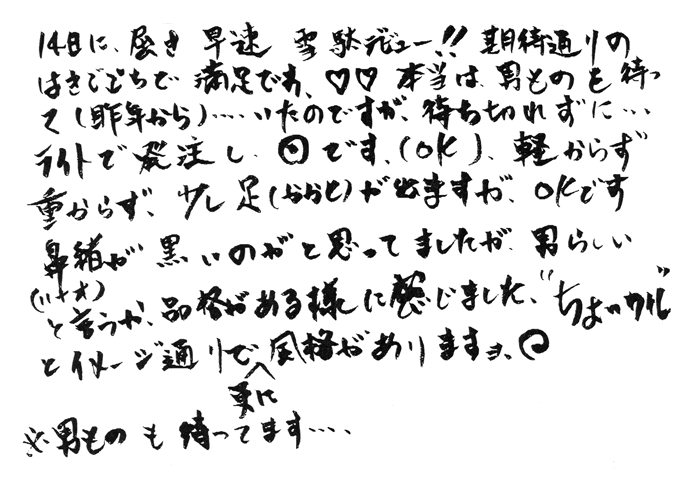 14日に、届き 早速 雪駄デビュー!! 期待通りの
はきごごちで 満足です、♡♡ 本当は、男ものを待っ
て(昨年から)……いたのですが、待ち切れずに…
ライトで発注し、◎です、(OK)、軽からず
重からず、少し足(かかと)が出ますが、OKです
鼻緒が 黒いのがと思ってましたが、男らしい
(ハナオ)
と言うか、品格がある様に感じました、"ちょいワル"
とイメージ通りで 風格がありますヨ、
更に
※男ものも待ってます….